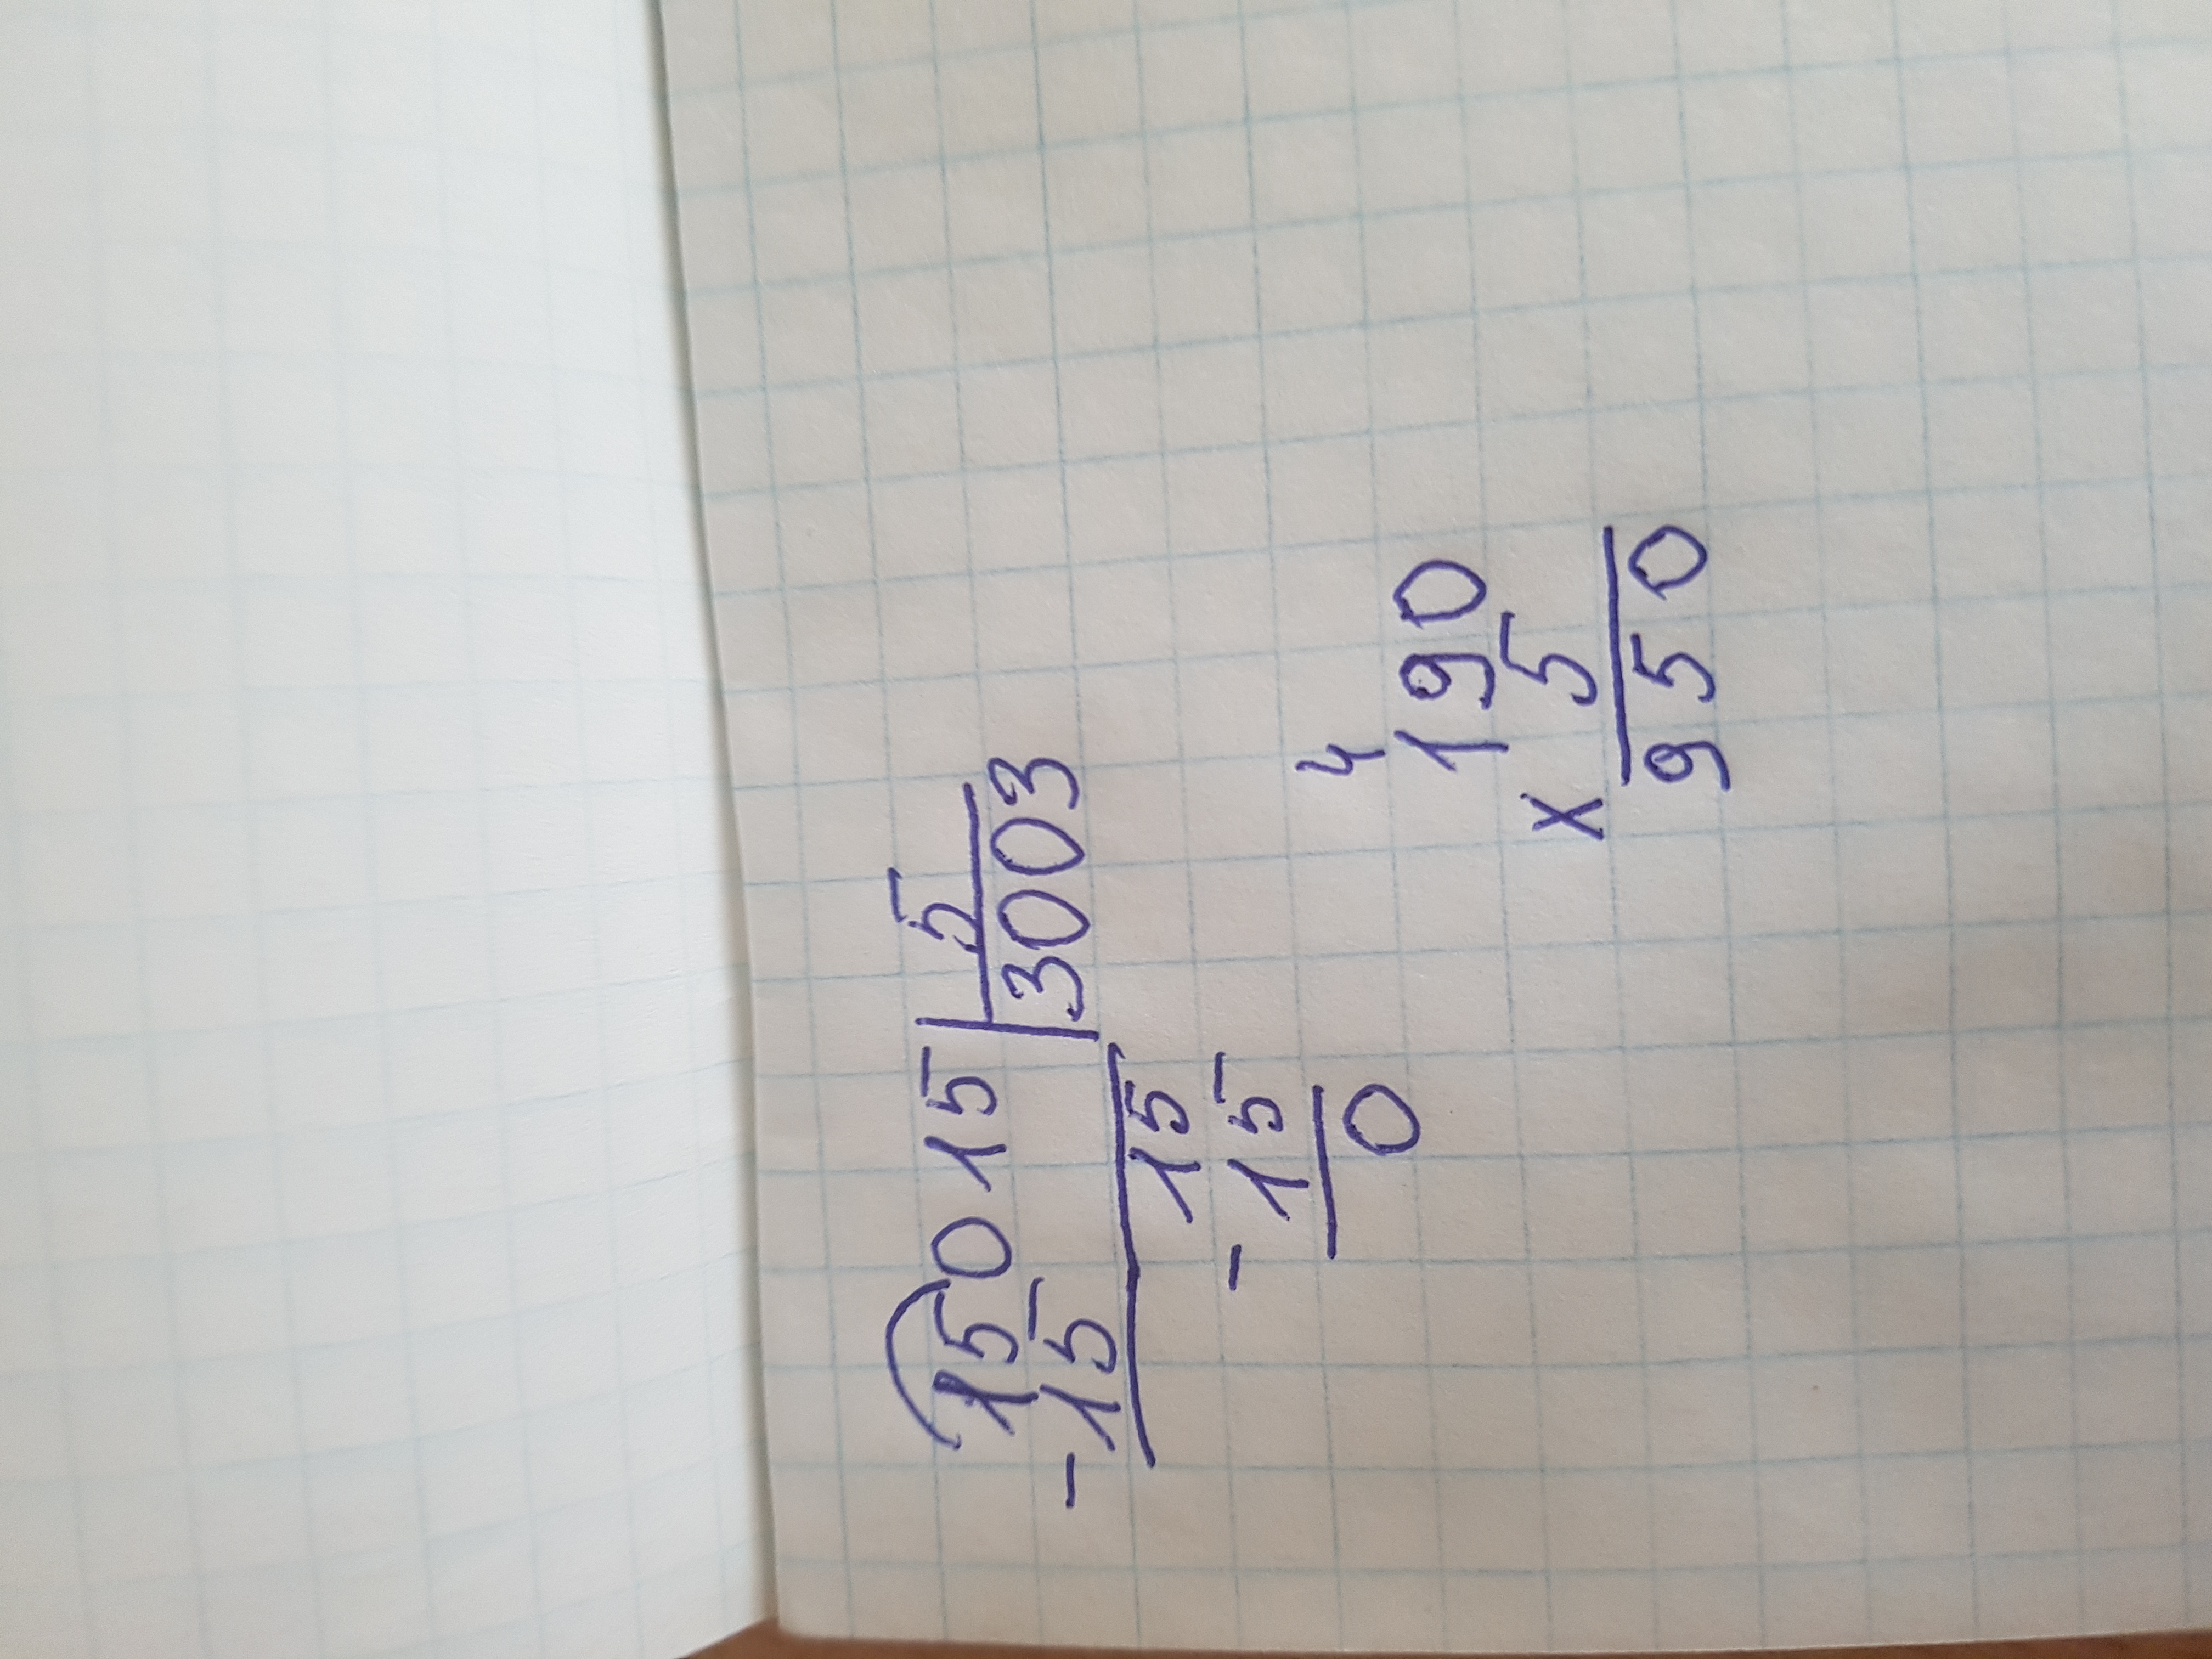 15015 | 5
-15 | 3003
15
-15
0
4
190
x 5
950